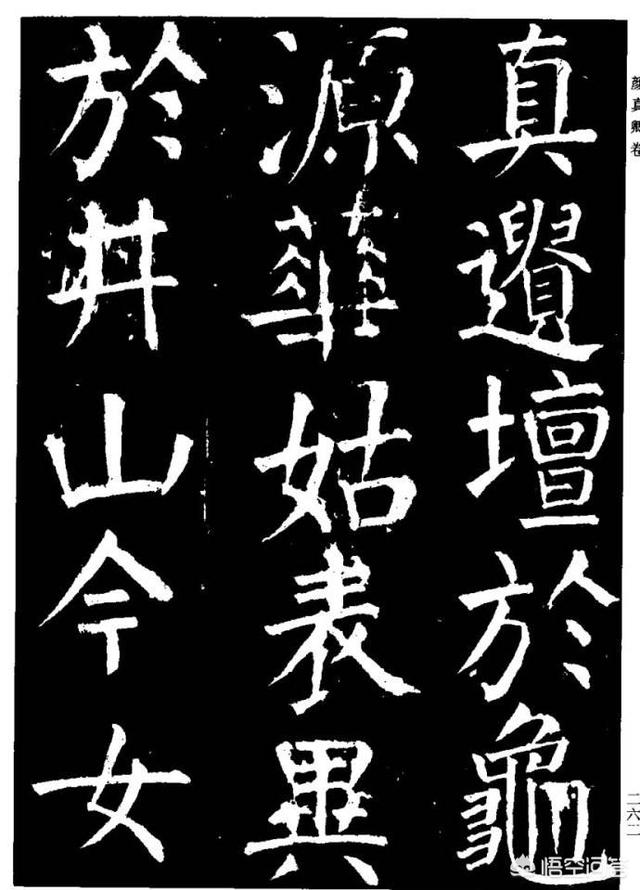 顏真卿卷
真遺壇於龜
源華姑表異
於井山今女
二六二
悟空问答